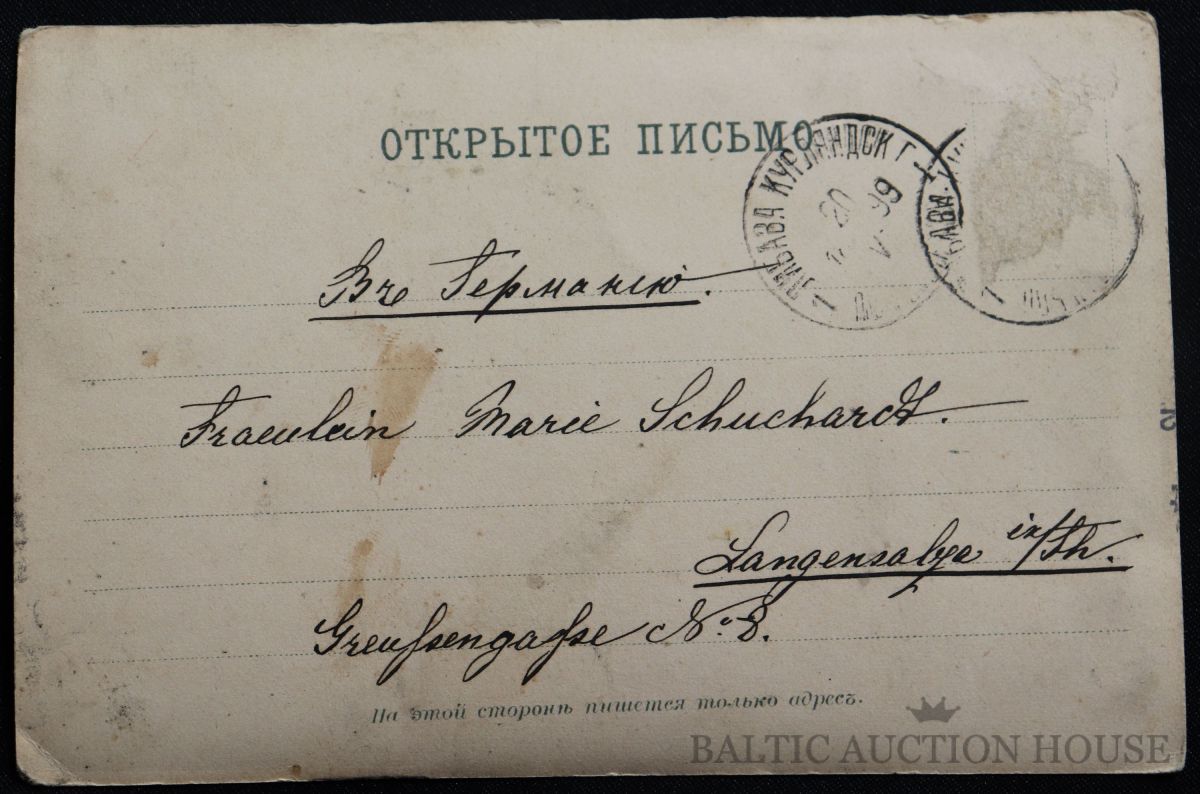 ОТКРЫТОЕ ПИСЬМО
ЛИБАВА КУРЛЯНДСК Г
20
V 99
1
1
Въ Германію.
Fraeulein Marie Schuchardt.
Langensalza in/Th.
Greußengaße No. 8.
На этой сторонѣ пишется только адресъ.
BALTIC AUCTION HOUSE